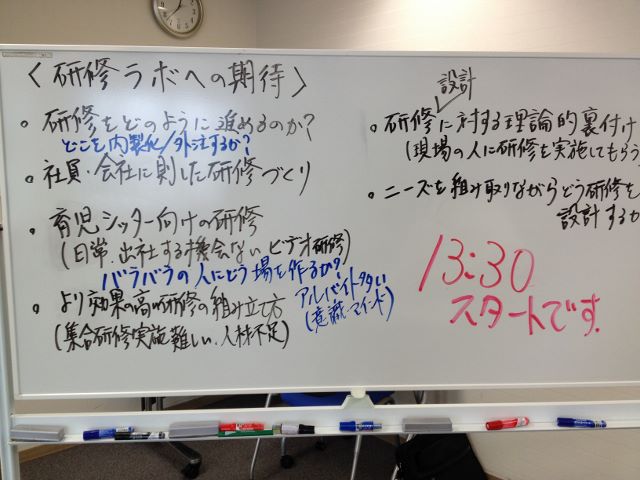 〈研修ラボへの期待〉
。研修をどのように進めるのか?
どこを内製化/外注するか?
。社員・会社に則した研修づくり
。育児シッター向けの研修
(日常、出社する機会ない、ビデオ研修)
バラバラの人にどう場を作るか?
。より効果の高い研修の組み立て方
(集合研修実施難しい、人材不足)
アルバイト多い
(意識・マインド)
設計
。研修に対する理論的裏付け
(現場の人に研修を実施してもらう
。ニーズを組み取りながらどう研修を
設計するか
13:30
スタートです.